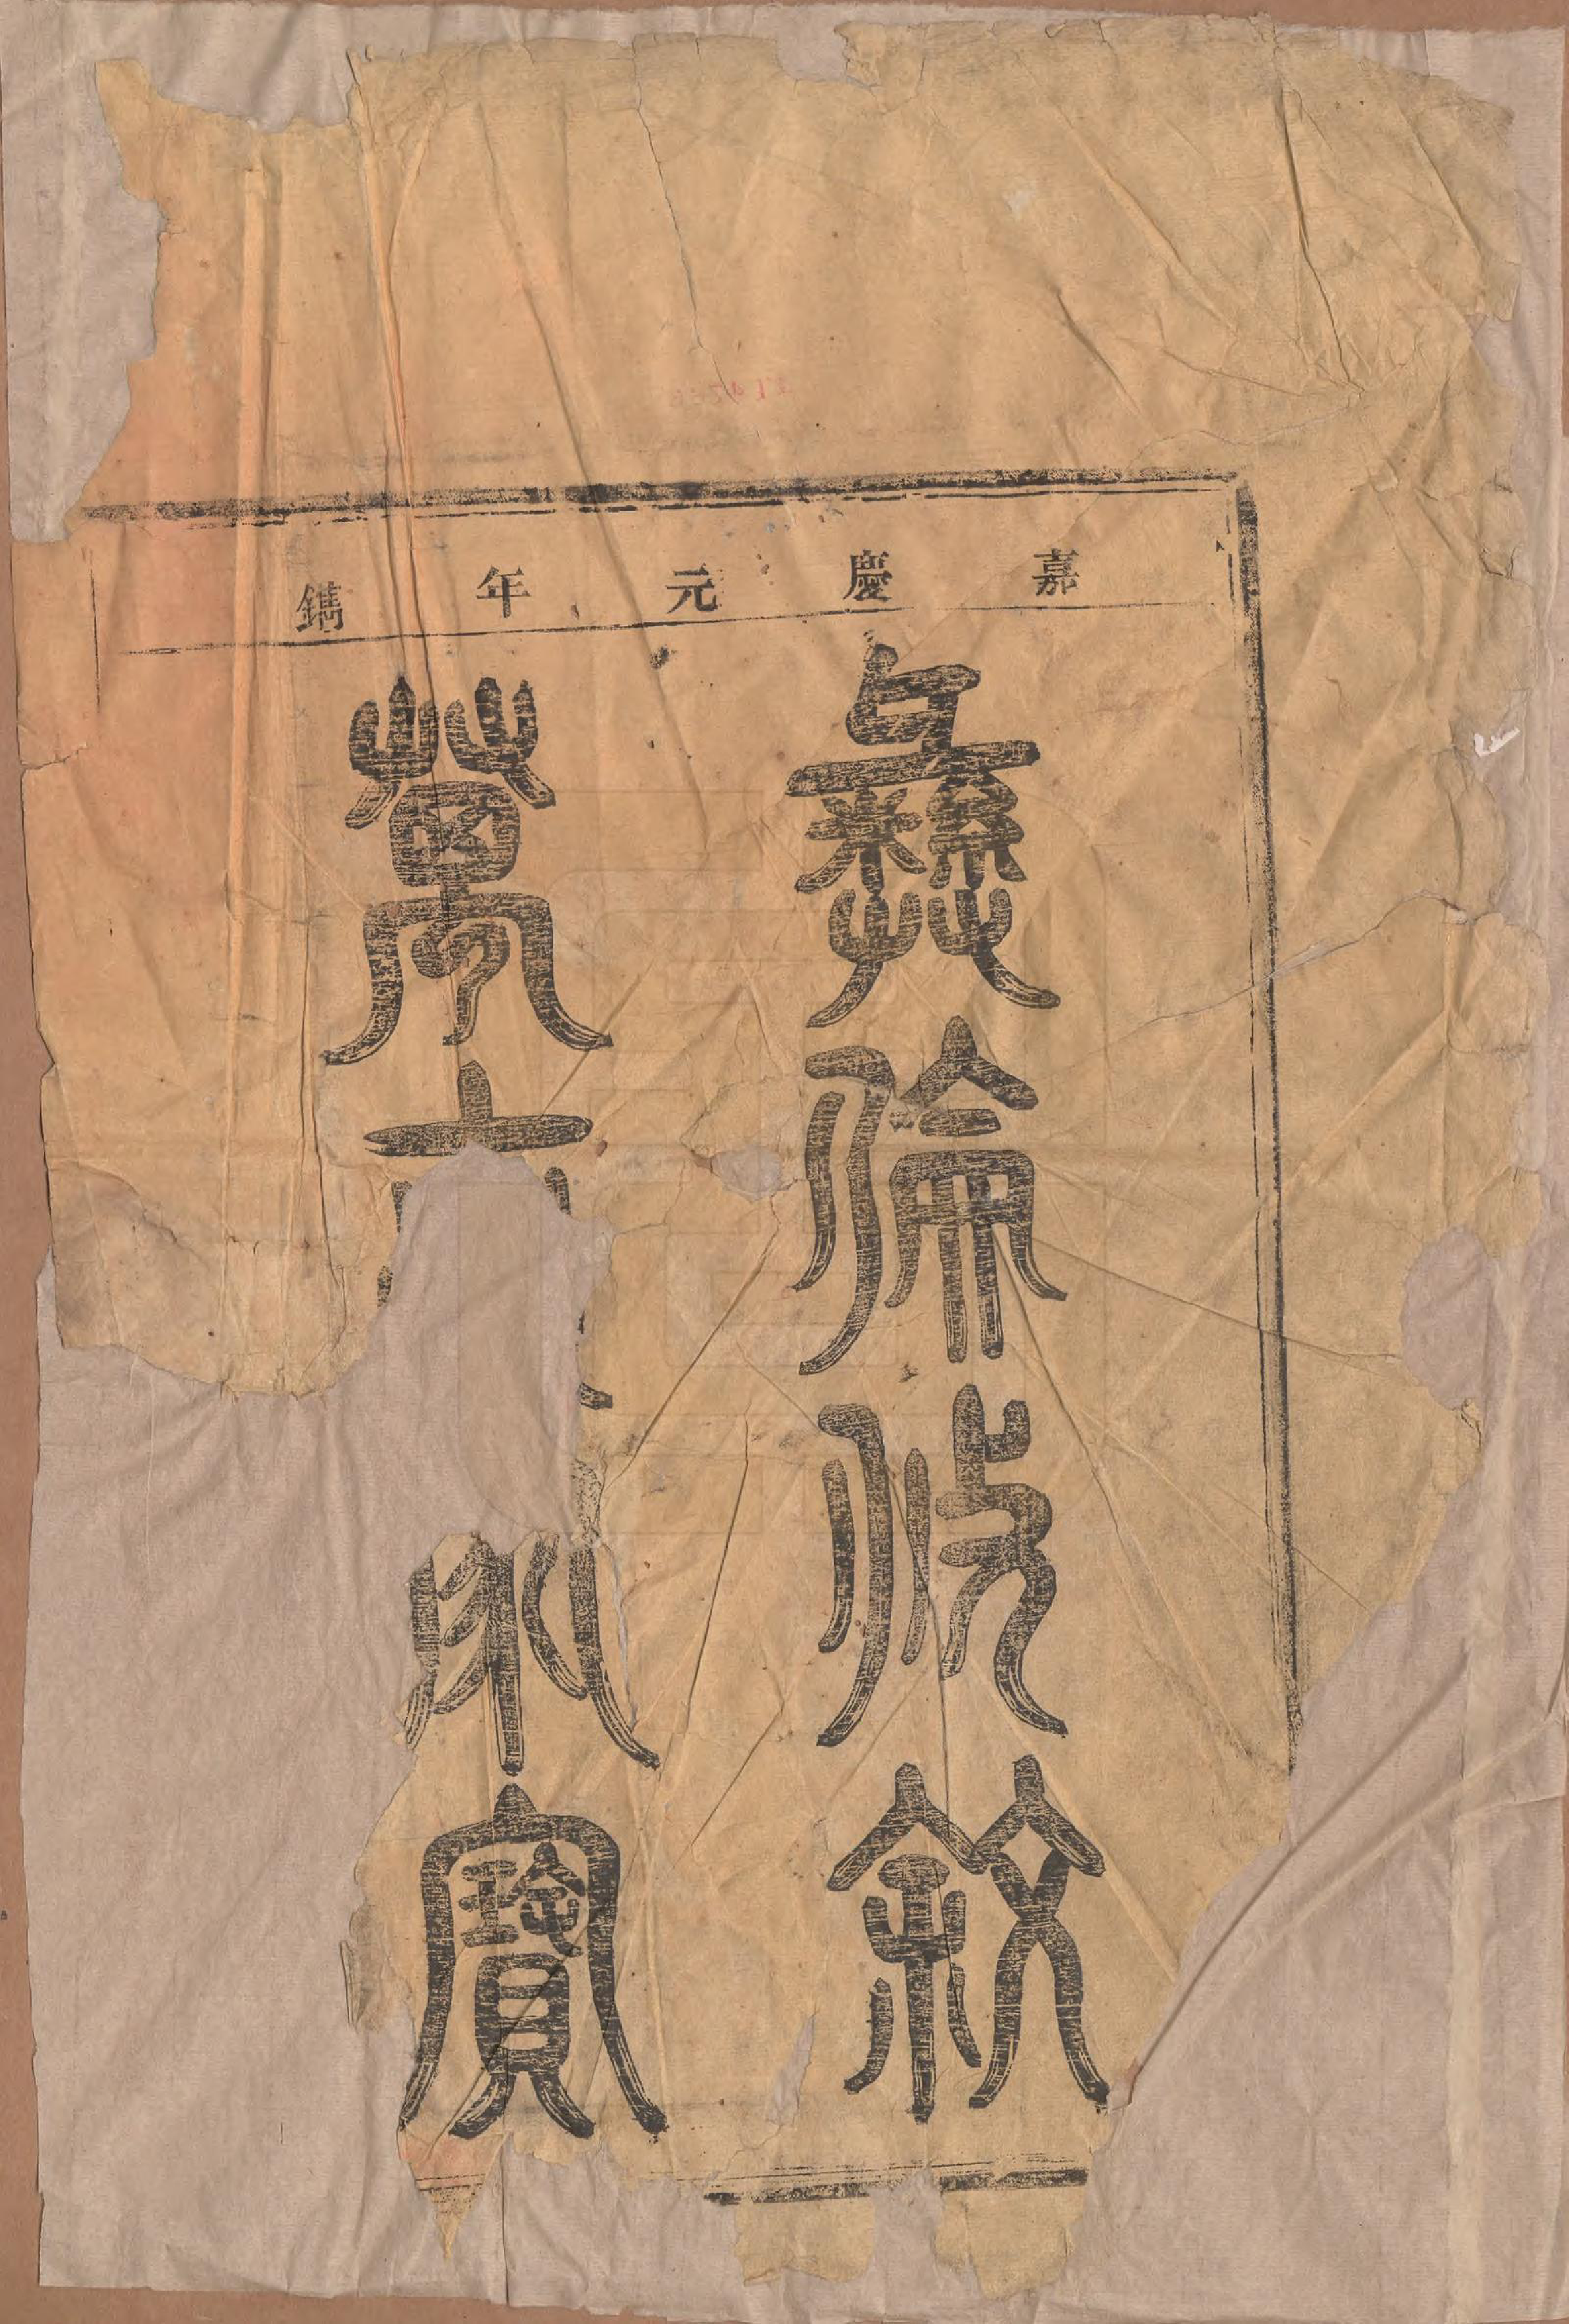 嘉慶元年鐫
彝倫攸敘
萬永寶